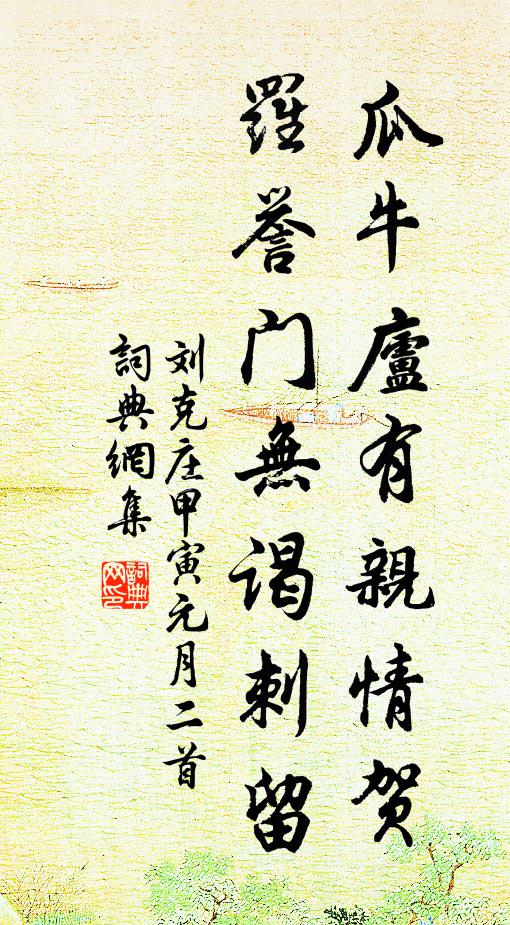 瓜牛廬有親情贺
羅誉门無谒刺留
刘克庄甲寅元月二首
詞典網集
詞典网印